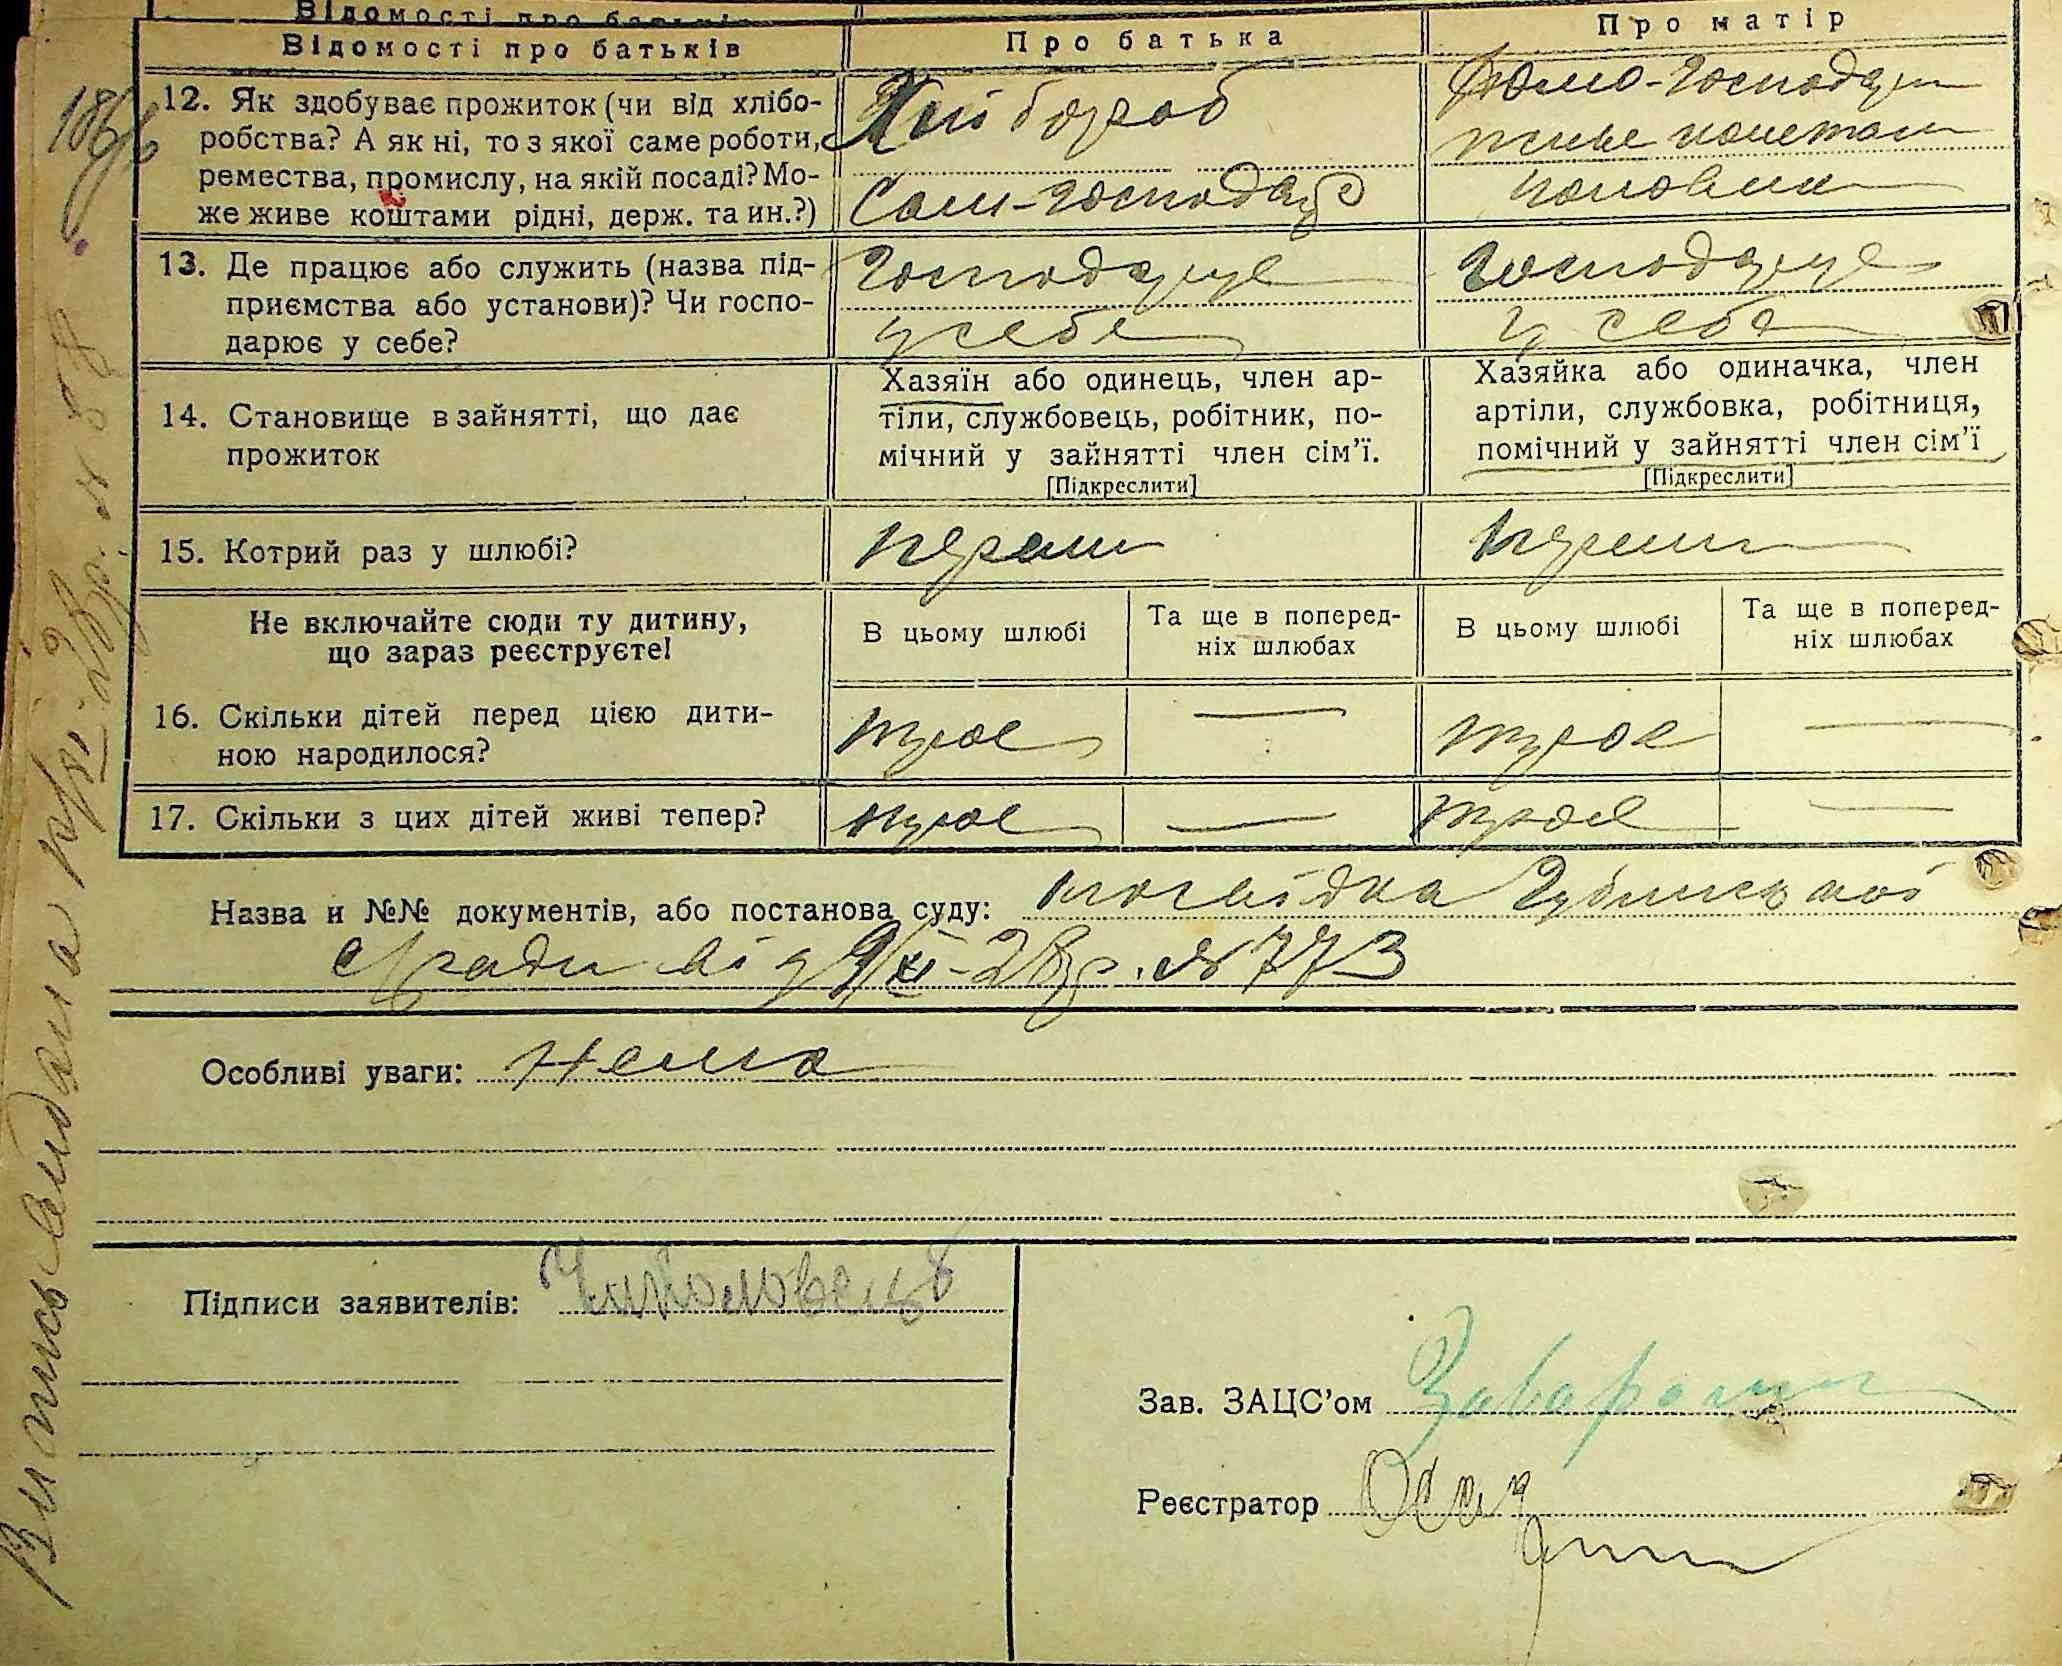 Відомості про батьків
Відомості про батьків
Про батька
Про матір
12. Як здобуває прожиток (чи від хлібо-
робства? А як ні, то з якої саме роботи,
ремества, промислу, на якій посаді? Мо-
же живе коштами рідні, держ. та ин.?)
Хлібороб
Сам-господар
Домо-господар
живе коштом
чоловіка
13. Де працює або служить (назва під-
приємства або установи)? Чи госпо-
дарює у себе?
Господарує
у себе
Господарує
у себе
14. Становище в зайнятті, що дає
прожиток
Хазяїн або одинець, член ар-
тіли, службовець, робітник, по-
мічний у зайнятті член сім'ї.
[Підкреслити]
Хазяйка або одиначка, член
артіли, службовка, робітниця,
помічний у зайнятті член сім'ї
[Підкреслити]
15. Котрий раз у шлюбі?
перший
перший
Не включайте сюди ту дитину,
що зараз реєструєте!
В цьому шлюбі
Та ще в поперед-
ніх шлюбах
В цьому шлюбі
Та ще в поперед-
ніх шлюбах
16. Скільки дітей перед цією дити-
ною народилося?
троє
—
троє
—
17. Скільки з цих дітей живі тепер?
троє
—
троє
—
Назва и №№ документів, або постанова суду: посвідка
с/ради від 9/XI-28р. № 773
Особливі уваги: нема
Підписи заявителів:
Зав. ЗАЦС'ом
Реєстратор
Випись видана